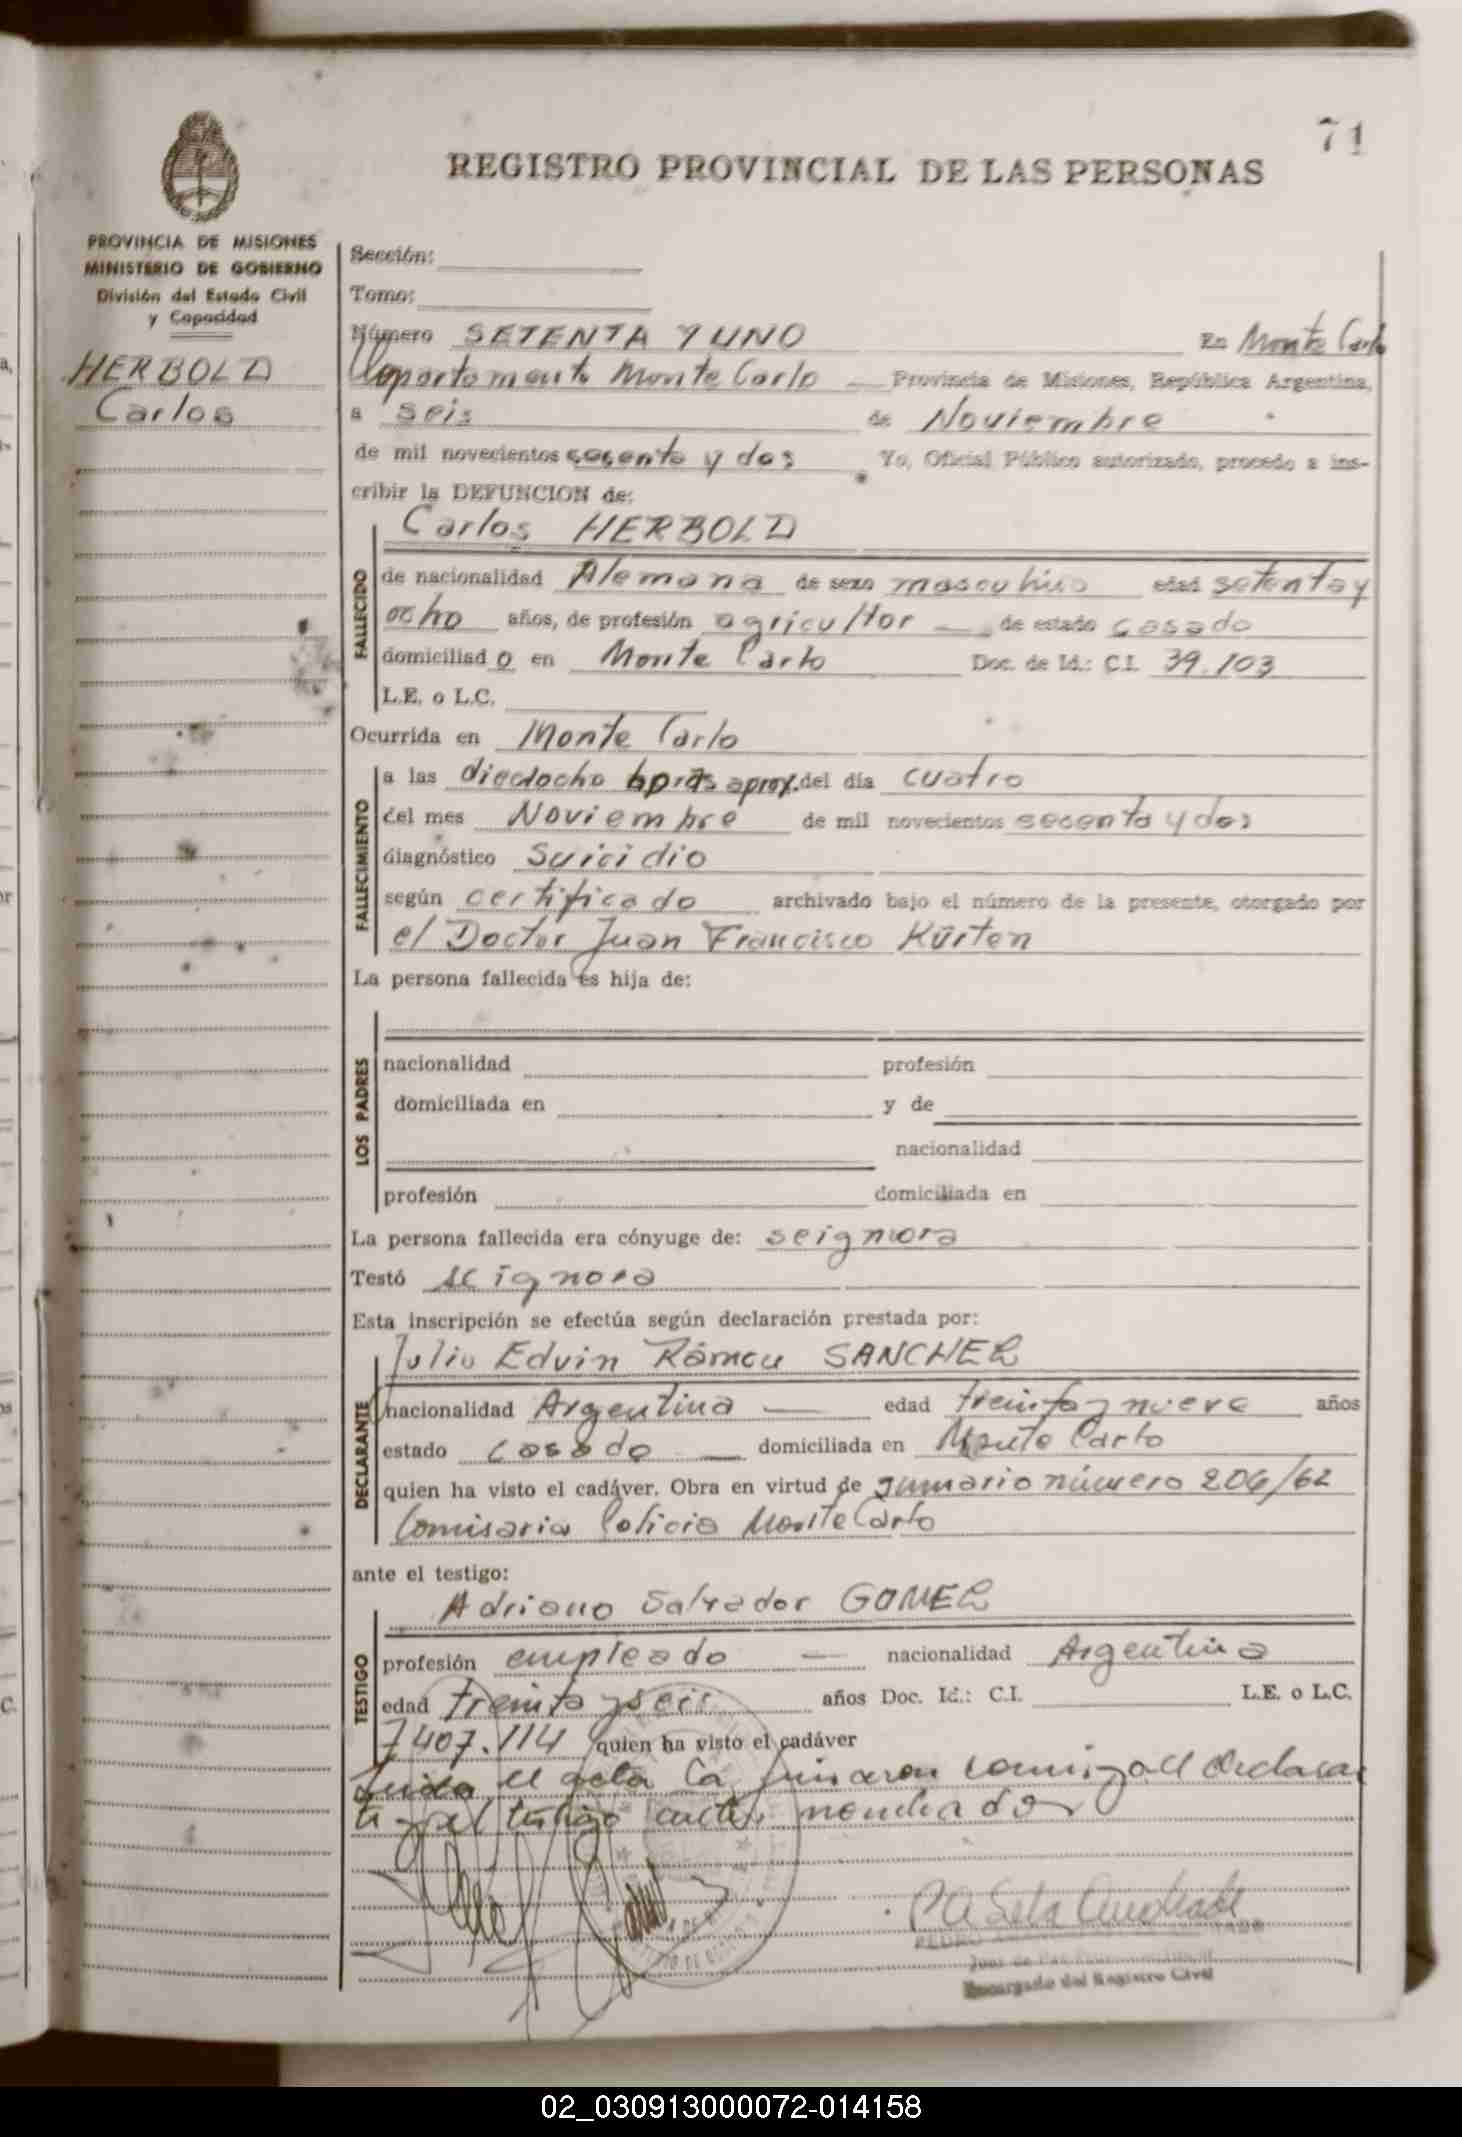 71
REGISTRO PROVINCIAL DE LAS PERSONAS
PROVINCIA DE MISIONES
MINISTERIO DE GOBIERNO
División del Estado Civil
y Capacidad
HERBOLD
Carlos
Sección:
Tomo:
Número SETENTA Y UNO En Monte Carlo
Departamento Monte Carlo Provincia de Misiones, República Argentina,
a seis de Noviembre
de mil novecientos sesenta y dos Yo, Oficial Público autorizado, procedo a ins-
cribir la DEFUNCION de:
Carlos HERBOLD
FALLECIDO
de nacionalidad Alemana de sexo masculino edad setenta y
ocho años, de profesión agricultor de estado casado
domiciliado en Monte Carlo Doc. de Id.: C.I. 39.103
L.E. o L.C.
Ocurrida en Monte Carlo
FALLECIMIENTO
a las dieciocho horas aprox. del día cuatro
del mes Noviembre de mil novecientos secenta y dos
diagnóstico Suicidio
según certificado archivado bajo el número de la presente, otorgado por
el Doctor Juan Francisco Kürten
La persona fallecida es hija de:
LOS PADRES
nacionalidad profesión
domiciliada en y de
nacionalidad
profesión domiciliada en
La persona fallecida era cónyuge de: seignora
Testó seignora
Esta inscripción se efectúa según declaración prestada por:
Julio Edvin Ramou SANCHEZ
DECLARANTE
nacionalidad Argentina edad treinta y nueve años
estado casado domiciliada en Monte Carlo
quien ha visto el cadáver. Obra en virtud de sumario número 206/62
Comisaria Policia Monte Carlo
ante el testigo:
Adriano Salvador GOMEZ
TESTIGO
profesión empleado nacionalidad Argentina
edad treinta y seis años Doc. Id.: C.I. L.E. o L.C.
7407.114 quien ha visto el cadáver
Leida el acta la firmaron conmigo el declaran
te y el testigo antes nombrado
PEDRO
Encargado del Registro Civil
02_030913000072-014158